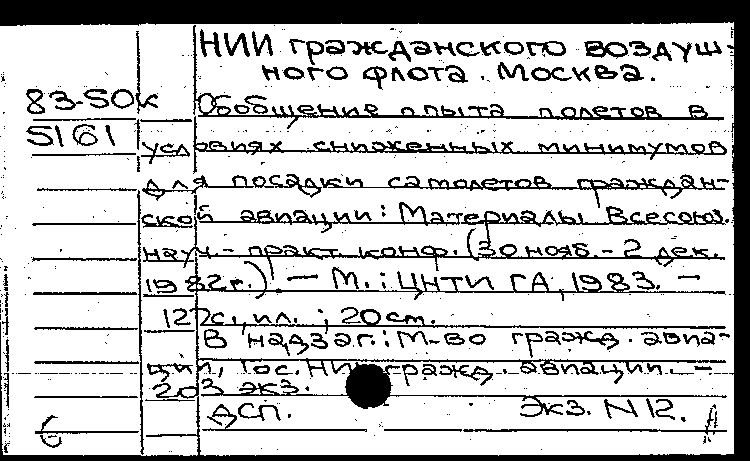 НИИ гражданского воздуш-
ного флота. Москва.
83-50к Обобщение опыта полетов в
5161 условиях сниженных минимумов
для посадки самолетов граждан-
ской авиации: Материалы Всесоюз.
науч.-практ. конф. (30 нояб. - 2 дек.
1982г.). — М.: ЦНТИ ГА, 1983. —
127с., ил. ; 20см.
В надзаг.: М-во гражд. авиа-
ции, Гос. НИИ гражд. авиации. —
203 экз.
ДСП. Экз. N 12.